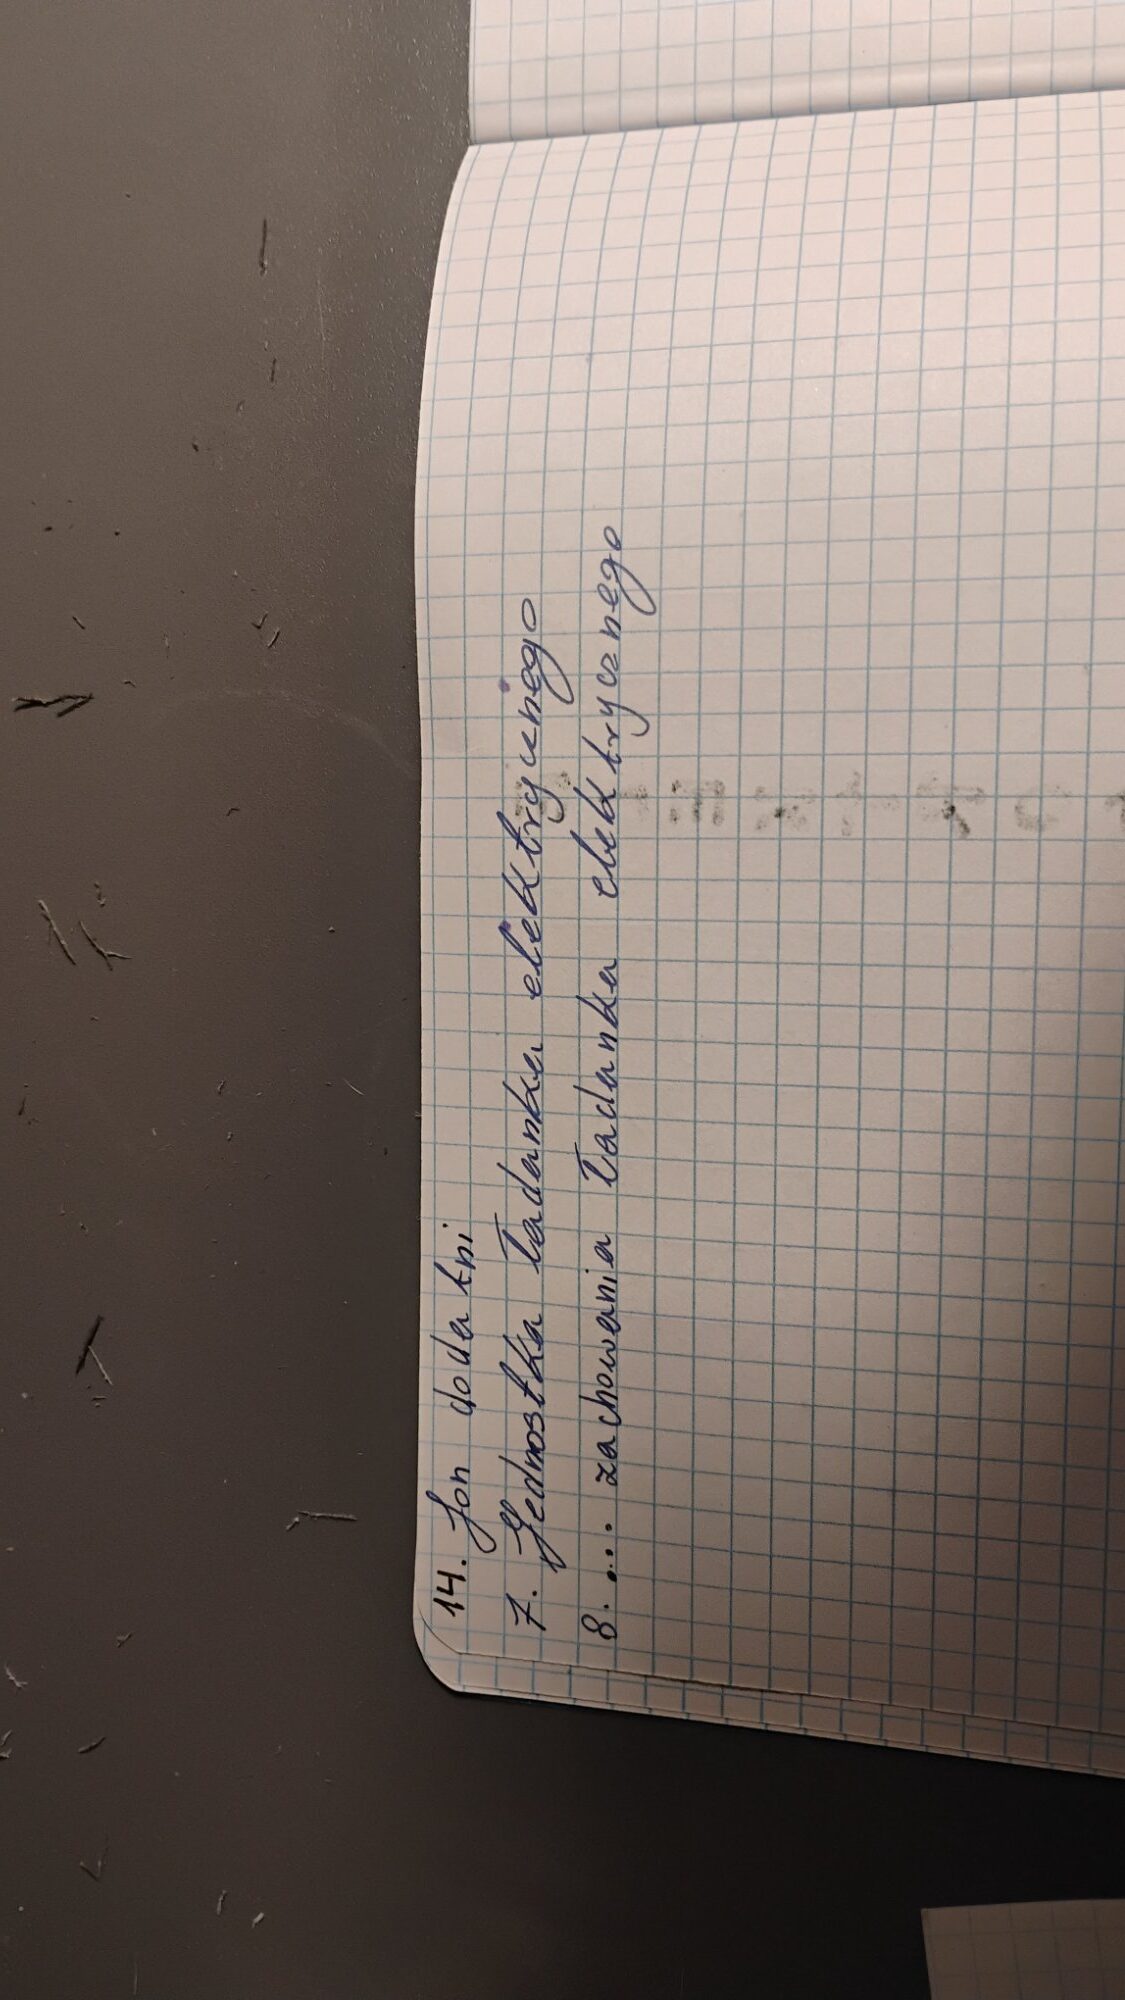 14. Jon dodatni
7. Jednostka ładunku elektrycznego
8. .... zachowania ładunku elektrycznego